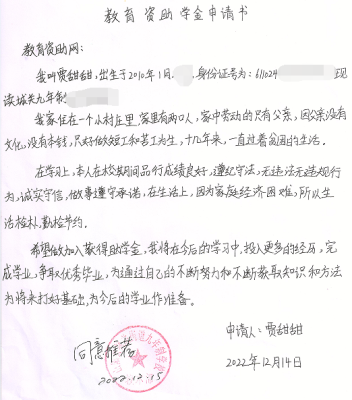 教育资助学金申请书
教育资助网：
我叫贾甜甜，出生于2010年1月 ，身份证号为：611024 现
读城关九年制
我家住在一个小村庄里，家里有两口人，家中劳动的只有父亲，因父亲没有
文化，没有本钱，只好做短工和苦工为生，十几年来，一直过着贫困的生活。
在学习上，本人在校期间品行成绩良好，遵纪守法，无违法无违规行
为，诚实守信，做事遵守承诺，在生活上，因为家庭经济困难，所以生
活检朴，勤检节约。
希望做加入获得助学金，我将在今后的学习中，投入更多的经历，完
成学业，争取优秀毕业，为通过自己的不断努力和不断获取知识和方法
为将来打好基础，为今后的学业作准备。
申请人：贾甜甜
2022年12月14日
同意推荐
2022.12.15